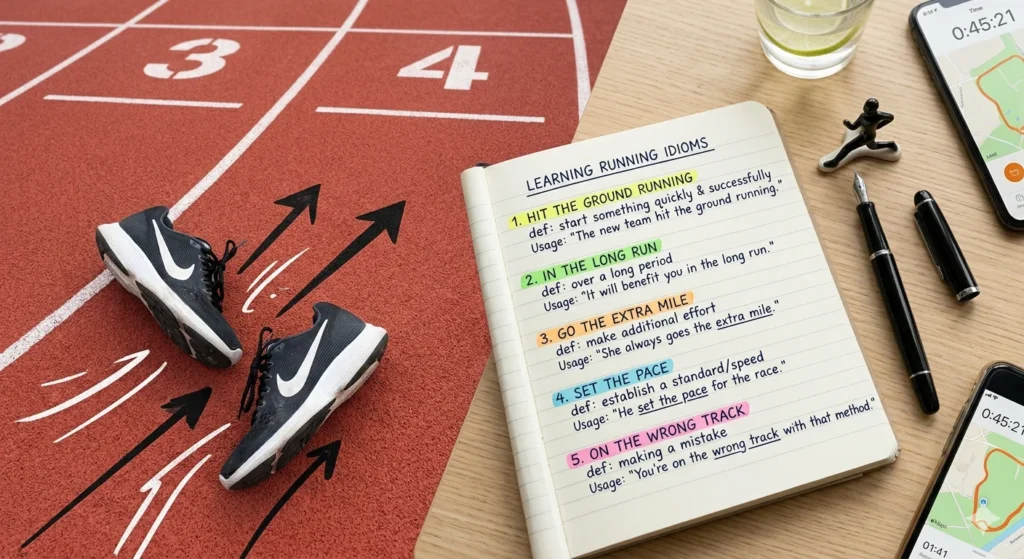 3
4
LEARNING RUNNING IDIOMS
1. HIT THE GROUND RUNNING
def: start something quickly & successfully
Usage: "The new team hit the ground running."
2. IN THE LONG RUN
def: over a long period
Usage: "It will benefit you in the long run."
3. GO THE EXTRA MILE
def: make additional effort
Usage: "She always goes the extra mile."
4. SET THE PACE
def: establish a standard/speed
Usage: "He set the pace for the race."
5. ON THE WRONG TRACK
def: making a mistake
Usage: "You're on the wrong track with that method."
Time
0:45:21
0:45:21
Maps
01:41